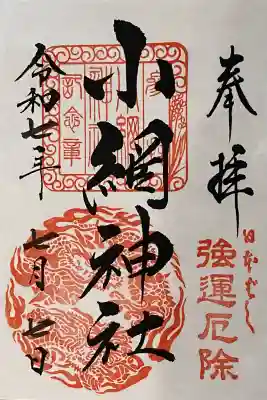 奉拝
日本ばし
強運厄除
小網神社
令和七年
七月七日